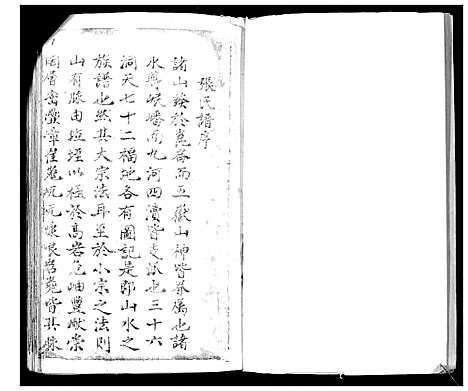 張氏譜序
諸山發於崑崙而五嶽山神皆眷屬也諸
水興岷嶓而九河四瀆皆支派也三十六
洞天七十二福地各有圖記是即山水之
族譜也然其大宗法耳至於小宗之法則
山有脉由逕以極於高岩危岫豐巘崇
岡層巒疊嶂崔嵬皆其脉